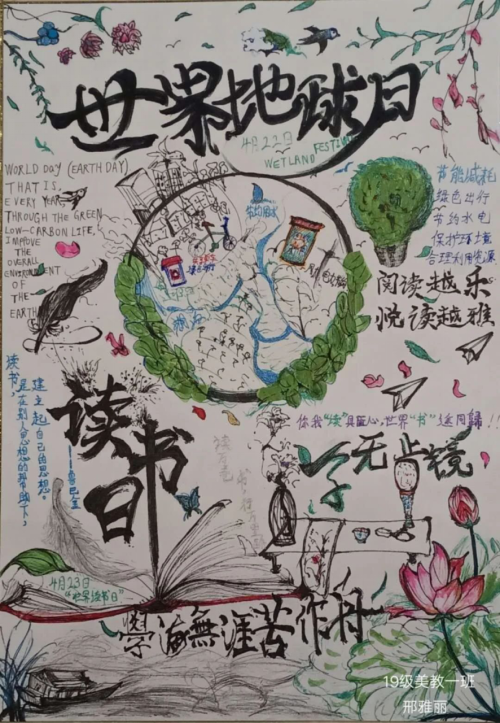 世界地球日
4月22日
WETLAND FESTIVAL
WORLD DAY (EARTH DAY)
THAT IS,
EVERY YEAR
THROUGH THE GREEN
LOW-CARBON LIFE,
IMPROVE
THE
OVERALL
ENVIRONMENT
OF
THE
EARTH
节约用水
节能减耗
绿色出行
节约水电
保护环境
合理利用资源
阅读越乐
悦读越雅
读书,
是在别人思想的帮助下,
建立起自己的思想。
——鲁巴金
读书日
你我“读”具匠心,世界“书”途同歸!!
学无止镜
4月23日
“世界读书日”
學海無涯苦作舟
19级美教一班
邢雅丽